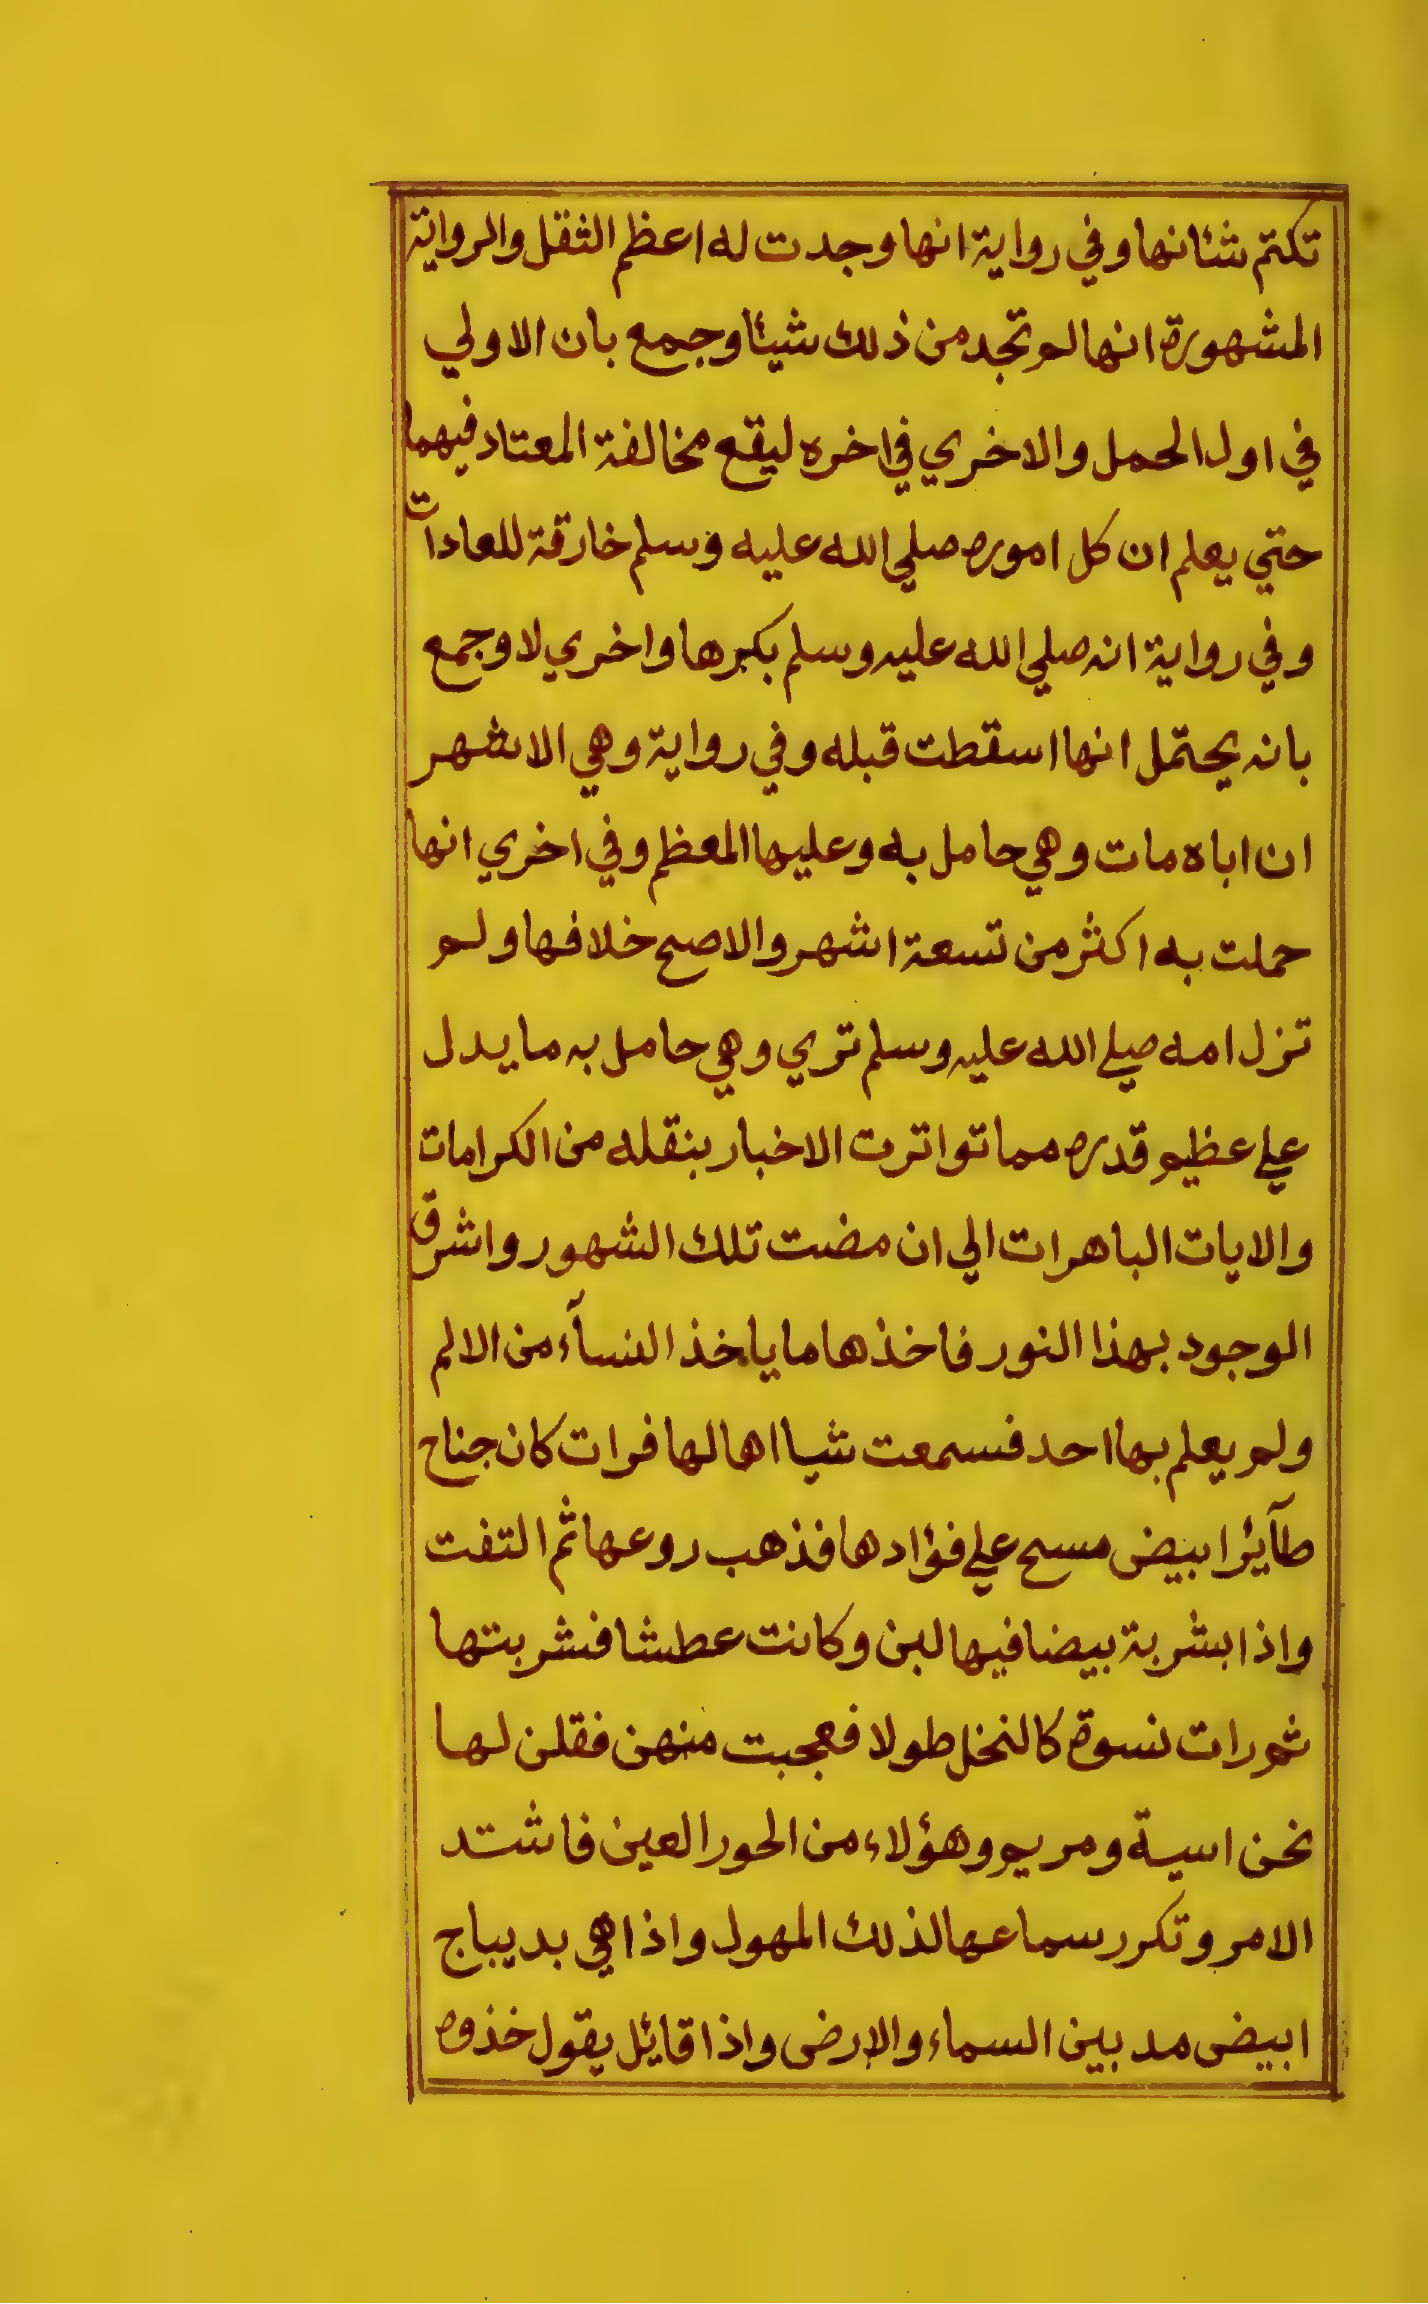 تكتم شئانها وفي رواية انها وجدت له اعظم الثقل والرواية
المشهورة انها لم تجد من ذلك شيئا وجمع بان الاولي
في اول الحمل والاخري في اخره ليقع مخالفة المعتاد فيهما
حتي يعلم ان كل اموره صلي الله عليه وسلم خارقة للعادات
وفي رواية انه صلي الله عليه وسلم بكرها واخري لا وجمع
بانه يحتمل انها اسقطت قبله وفي رواية وهي الاشهر
ان اباه مات وهي حامل به وعليها المعظم وفي اخري انها
حملت به اكثر من تسعة اشهر والاصح خلافها ولم
تزل امه صلے الله عليه وسلم تري وهي حامل به ما يدل
علے عظيم قدره مما تواترت الاخبار بنقله من الكرامات
والايات الباهرات الي ان مضت تلك الشهور واشرق
الوجود بهذا النور فاخذها ما ياخذ النسآء من الالم
ولم يعلم بها احد فسمعت شيا اهالها فرات كان جناح
طآئرا بيض مسح علے فؤادها فذهب روعها ثم التفت
واذا بشربة بيضا فيها لبن وكانت عطشا فشربتها
ثم رات نسوة كالنخل طولا فعجبت منهن فقلن لها
نحن اسية ومريم وهؤلاء من الحور العين فاشتد
الامر وتكرر سماعها لذلك المهول واذا هي بديباج
ابيض مد بين السماء والارض واذا قائل يقول خذوه